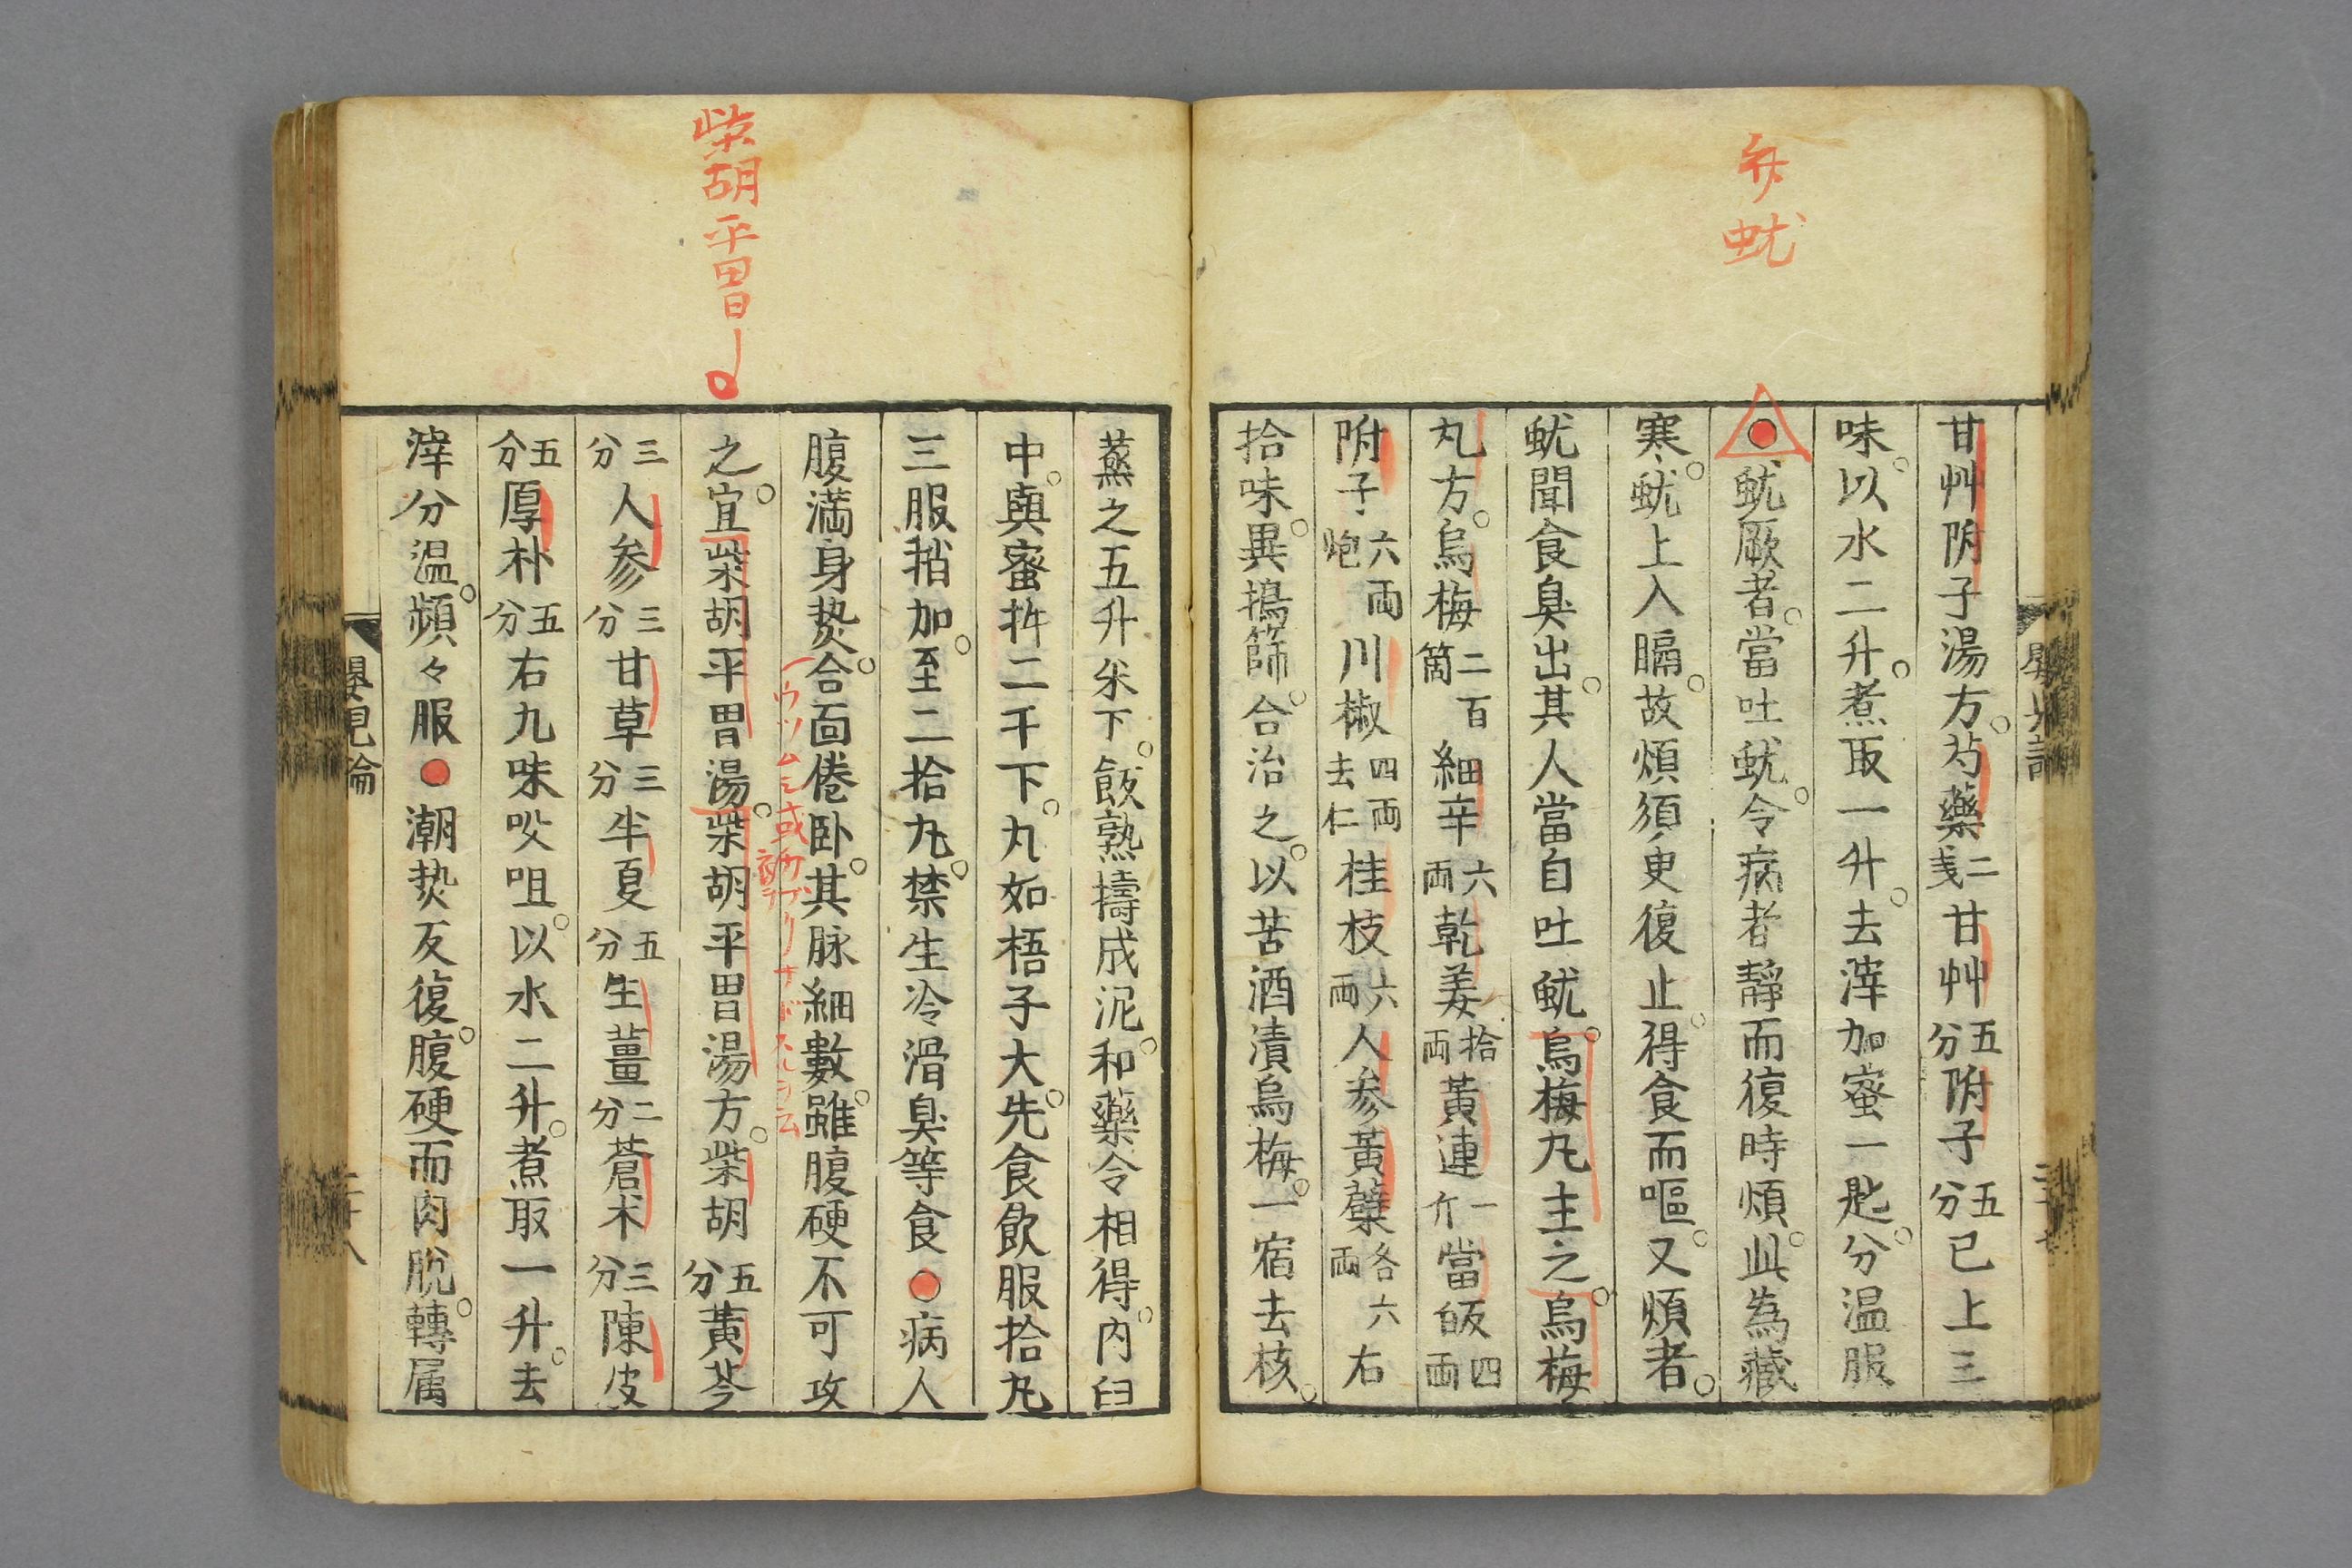 弁蚘
甘艸附子湯方。芍藥二戔甘艸五分附子五分已上三
味。以水二升。煮取一升。去滓加蜜一匙。分温服
●蚘厥者。當吐蚘。令病者靜而復時煩。此為藏
寒。蚘上入膈。故煩須臾復止。得食而嘔。又煩者。
蚘聞食臭出。其人當自吐蚘。烏梅丸主之。烏梅
丸方。烏梅二百箇細辛六両乾姜拾両黃連一斤當皈四両
附子六両炮川椒四両去仁桂枝六両人参黃蘗各六両右
拾味。異搗篩。合治之。以苦酒漬烏梅。一宿去核。
柴胡平胃〡
蒸之五升米下。飯熟擣成泥。和藥令相得。内臼
中。與蜜杵二千下。丸如梧子大。先食飲服拾丸
三服稍加。至二拾丸。禁生冷滑臭等食●病人
腹満身𤍠。合面倦卧。其脉細數。雖腹硬不可攻
之。宜柴胡平胃湯。柴胡平胃湯方。柴胡五分黃芩
三分人参三分甘草三分半夏五分生薑二分蒼朮三分陳皮
五分厚朴五分右九味㕮咀。以水二升。煮取一升。去
滓分温。頻々服●潮𤍠反復。腹硬而肉脫。轉属